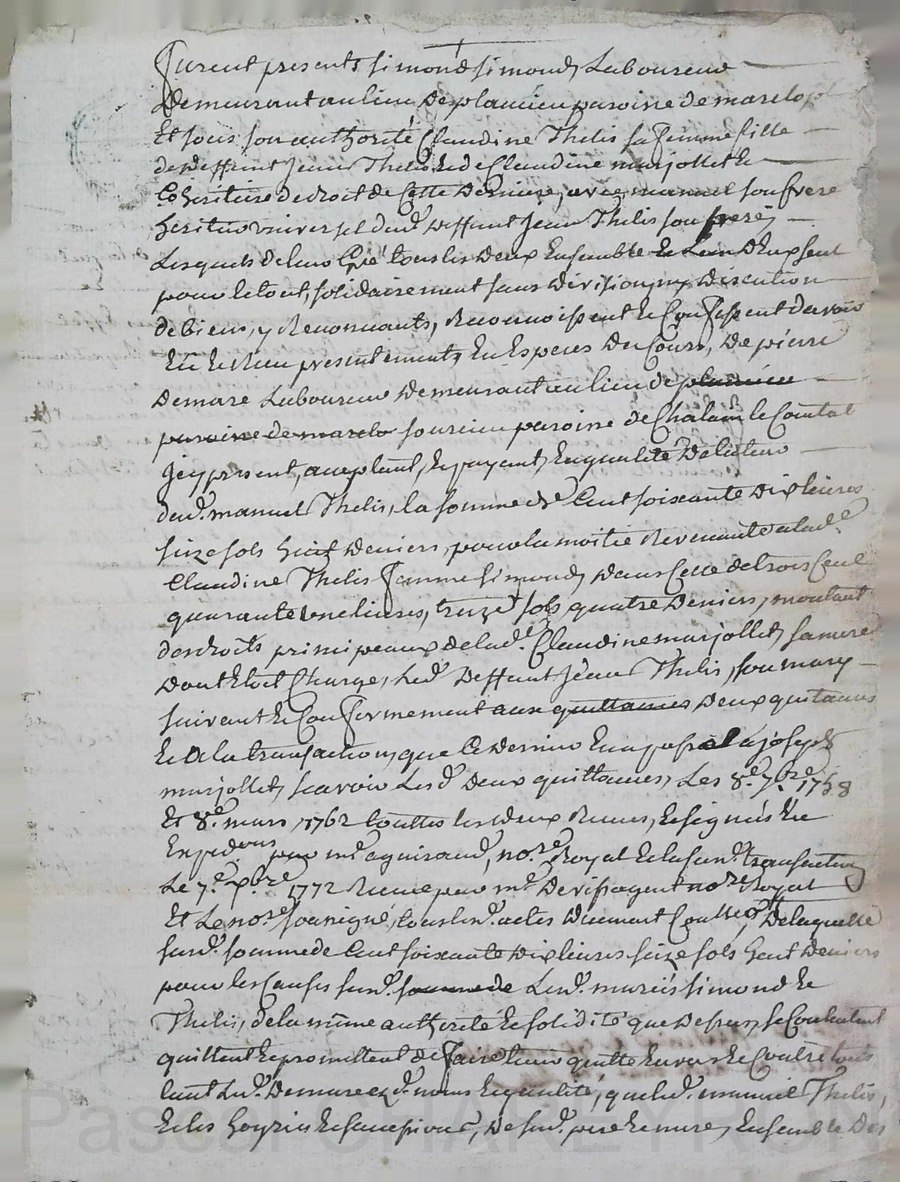 furent presents simond simond, Laboureur
Demeurant au lieu De plancieu paroisse de marclop
Et sous son authorité Claudine Thelis sa femme fille
de deffunt Jean Thelis, & de Claudine marjollet &
Cohéritiere de droit de Cette Derniere, avec manuel son frere
heritier universel dud. deffunt Jean Thelis son frere,
Lesquels de leur Gré tous les deux Ensemble & Lun D'Eux seul
pour le tout, solidairement sans Division, ny Discution
de biens, y Renoncants, Reconnoissent & Confessent davoir
Eû & Reçu presentement, En Especes Du Cours, De pierre
Demare Laboureur Demeurant au lieu de plancieu
paroisse de marclo paroisse de Chalain le Comtal
icy present, acceptant, & payant, En qualité De tuteur
dud. manuel Thelis, la somme de Cent soixante Dix livres
seize sols huit Deniers, pour la moitié Revenante a lad.e
Claudine Thelis femme simond, Dans Celle de trois Cent
quarante une livres, treize sols quatre Deniers, montant
des droits principaux de lad.e Claudine marjollet, sa mere
Dont Etoit Chargé, Led. Deffunt Jean Thelis, son mary
suivant & Conformement aux quittances Deux quitances
& a la transaction, que Ce Dernier En a passé a joseph
marjollet, scavoir Lesd. Deux quittances, Les 8.e 7.bre 1758
Et 8.e mars 1762 touttes les deux Reçues, & signées En
Expedons par m.e aguiraud, no.re Royal & la susd. transaction
Le 7.e xbre 1772 Reçue par m.e no.re Royal
Et Le no.re soussigné, tous lesd. actes Duement Contt.ôl, De laquelle
susd. somme de Cent soixante Dix livres seize sols huit Deniers
pour les Causes susd. somme de Lesd. mariés simond &
Thelis, de la même authorité & solidité que Dessus, se Contentent
quittent & promettent de faire tenir quitte Envers & Contre tous
tant Led. Demare aud. nom & qualité, que led. manuel Thelis,
& les hoyries De sesd. pere & mere, Ensemble Des
Pascal CHANEYRON